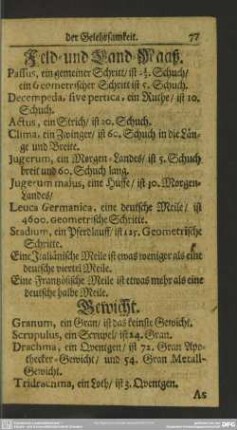 der Gelehrsamkeit. 77
Feld-und Land-Maaß.
Passus, ein gemeiner Schritt/ ist Schuch/
ein Geometrischer Schritt ist 5. Schuch.
Decempeda, sive pertica, ein Ruthe/ ist 10.
Schuch.
Actus, ein Strich/ ist Schuch.
Clima, ein Zwinger/ ist 60. Schuch in die Län-
ge und Breite.
Jugerum, ein Morgen-Landes/ ist 5. Schuch
breit und 60. Schuch lang.
Jugerum majus, eine Huffe/ ist 30. Morgen-
Landes/
Leuca Germanica, eine deutsche Meile/ ist
4600. Geometrische Schritte.
Stadium, ein Pferdlauff/ ist 125. Geometrische
Schritte.
Eine Italiänische Meile ist etwas weniger als eine
deutsche viertel Meile.
Eine Frantzösische Meile ist etwas mehr als eine
deutsche halbe Meile.
Gewicht.
Granum, ein Gran/ ist das kleinste Gewicht.
Scrupulus, ein Scrupel/ ist 24. Gran.
Drachma, ein Qventgen/ ist 72. Gran Apo-
thecker-Gewicht/ und 54. Gran Metall-
Gewicht.
Tridrachma, ein Loth/ ist 3. Qventgen.
As